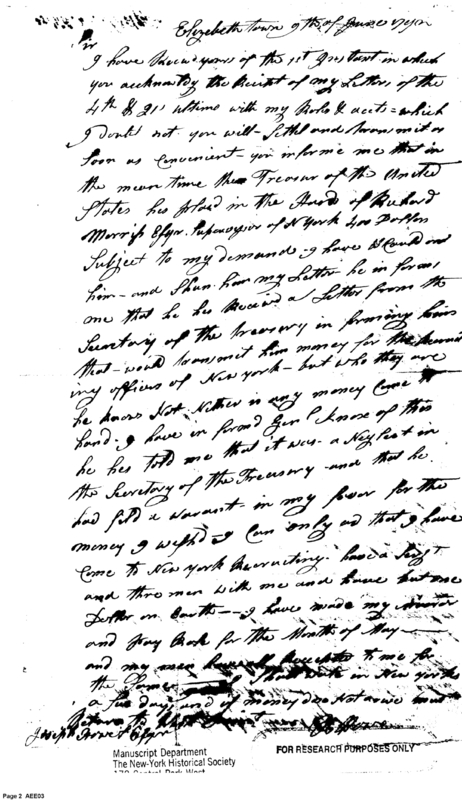 Elizabeth town 9th of June 1792
Sir
I have Receivd yours of the 1st Instant in which
you acknowledg the Receipt of my Letters of the
4th & 21st ultimo with my Rolls & accts = which
I doubt not you will Settel and transmit as
Soon as Convenient - you inform me that in
the mean time the Treasur of the United
States has plasd in the Hand of Richard
Morriss Esqr. Supervisor of N York 400 Dollars
Subject to my demand - I have
him - and Shun him my Letter he in forms
me that he hes Receivd a Letter from the
Secretary of the treasury in forming him
that - would transmit him money for the Recruit
ing officers of New york - but who they are
he knows Not Nither is any money Come to
hand - I have in formd Genl Knox of this
he hes told me that it was a Neglect in
the Secretary of the Treasury - and that he
had fild a warant - in my favor for the
money I wishd I Can only ad that I have
Come to New york Recruting - have a Sergt
and three men with me and have but one
Doller on Earth -- I have made my Muster
and Pay Role for the Month of May
and my men to me for
the Same in New york
a few days and if money doe Not arive must
Return to
Joseph Howel Esqr
Manuscript Department
The New-York Historical Society
170 Central Park West
FOR RESEARCH PURPOSES ONLY
Page 2 AEE03